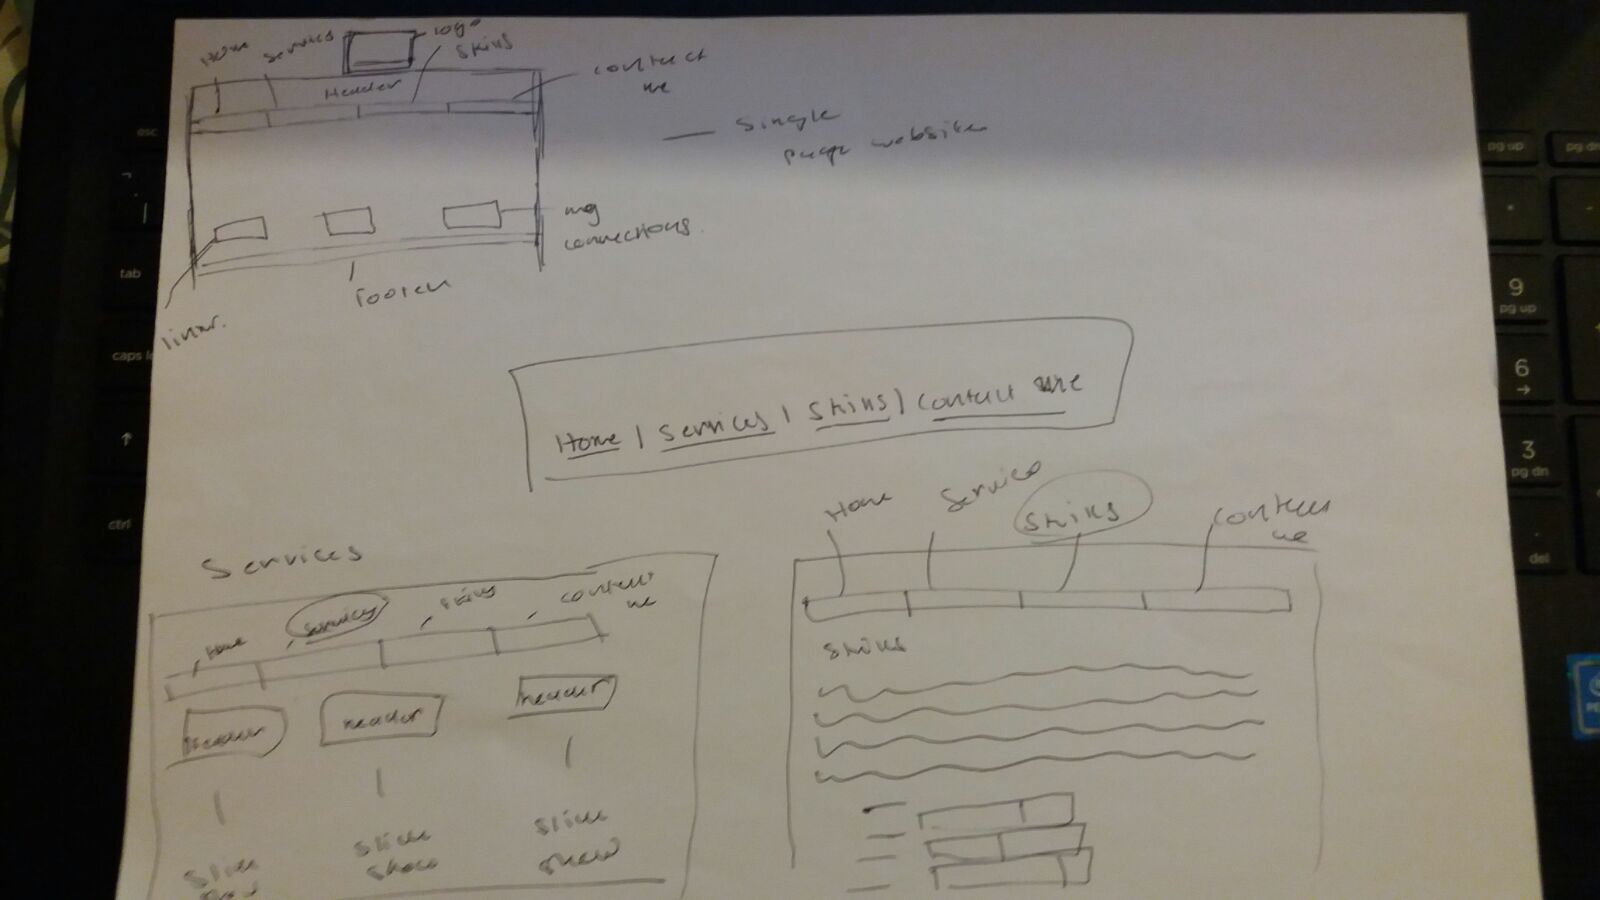 Home
Services
logo
Skills
Header
contact
me
single
page website
my
connections.
Footer
Home | Services | Skills | Contact me
Services
Home
Services
Skills
contact
me
Header
header
header
Slide
show
Slide
show
Slide
Home
Service
Skills
Contact
me
Skills
esc
tab
caps l
ctrl
pg up
pg dn
9
pg up
6
3
pg dn
del